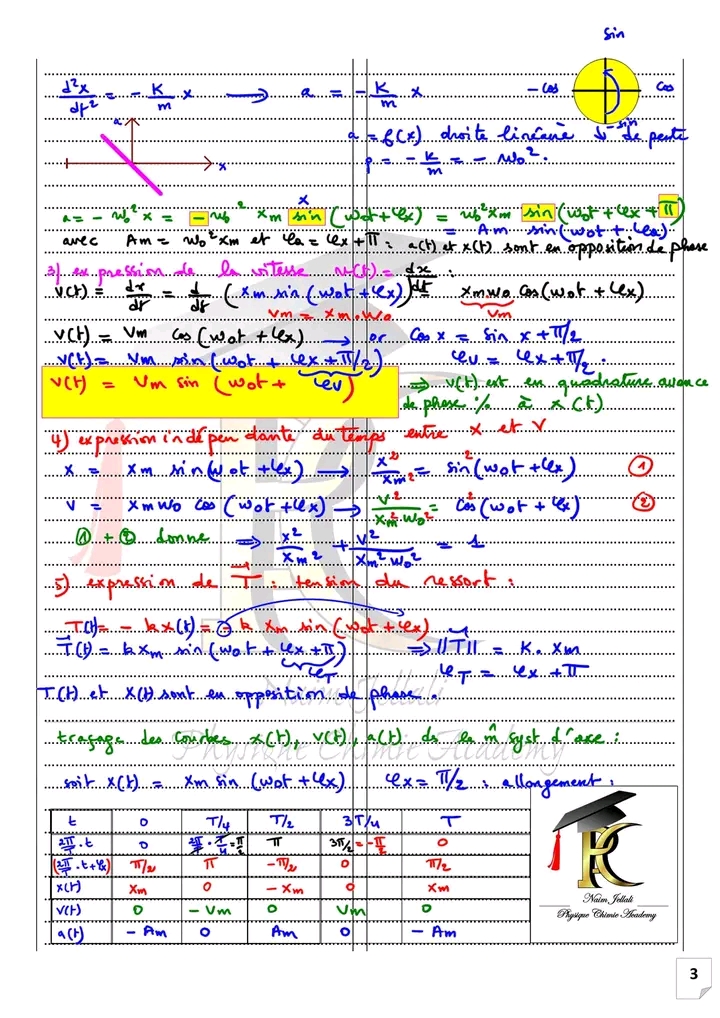 sin
d²x/dt² = - K/m x → a = - K/m x
- cos cos
- sin
a = f(x) droite linéaire de pente
p = - K/m = - w₀².
a
x
a = - w₀² x = - w₀² xm sin (w₀t + φx) = w₀² xm sin (w₀t + φx + π)
= Am sin (w₀t + φa)
avec Am = w₀² xm et φa = φx + π : a(t) et x(t) sont en opposition de phase
3) expression de la vitesse v(t) = dx/dt :
V(t) = dx/dt = d/dt (xm sin (w₀t + φx)) = xm w₀ cos (w₀t + φx)
Vm = xm . w₀ Vm
V(t) = Vm cos (w₀t + φx) → or cos x = sin x + π/2
V(t) = Vm sin (w₀t + φx + π/2) φv = φx + π/2 .
V(t) = Vm sin (w₀t + φv) ⇒ v(t) est en quadrature avance
de phase % à x(t)
4) expression indépendante du temps entre x et v
x = xm sin (w₀t + φx) → x²/xm² = sin² (w₀t + φx) ①
v = xm w₀ cos (w₀t + φx) → v²/xm² w₀² = cos² (w₀t + φx) ②
① + ② donne ⇒ x²/xm² + v²/xm² w₀² = 1
5) expression de T : tension du ressort :
T(t) = - k x(t) = - k xm sin (w₀t + φx)
T(t) = k xm sin (w₀t + φx + π) ⇒ ||T|| = K . xm
φT φT = φx + π
T(t) et x(t) sont en opposition de phase .
Naim Jellali
traçage des courbes x(t), v(t), a(t) ds le m̂ syst d'axe :
Physique Chimie Academy
soit x(t) = xm sin (w₀t + φx) φx = π/2 : allongement :
t 0 T/4 T/2 3T/4 T
2π/T . t 0 2π/T . T/4 = π/2 π 3π/2 = - π/2 0
(2π/T . t + φx) π/2 π - π/2 0 π/2
x(t) xm 0 - xm 0 xm
v(t) 0 - Vm 0 Vm 0
a(t) - Am 0 Am 0 - Am
Naim Jellali
Physique Chimie Academy
3